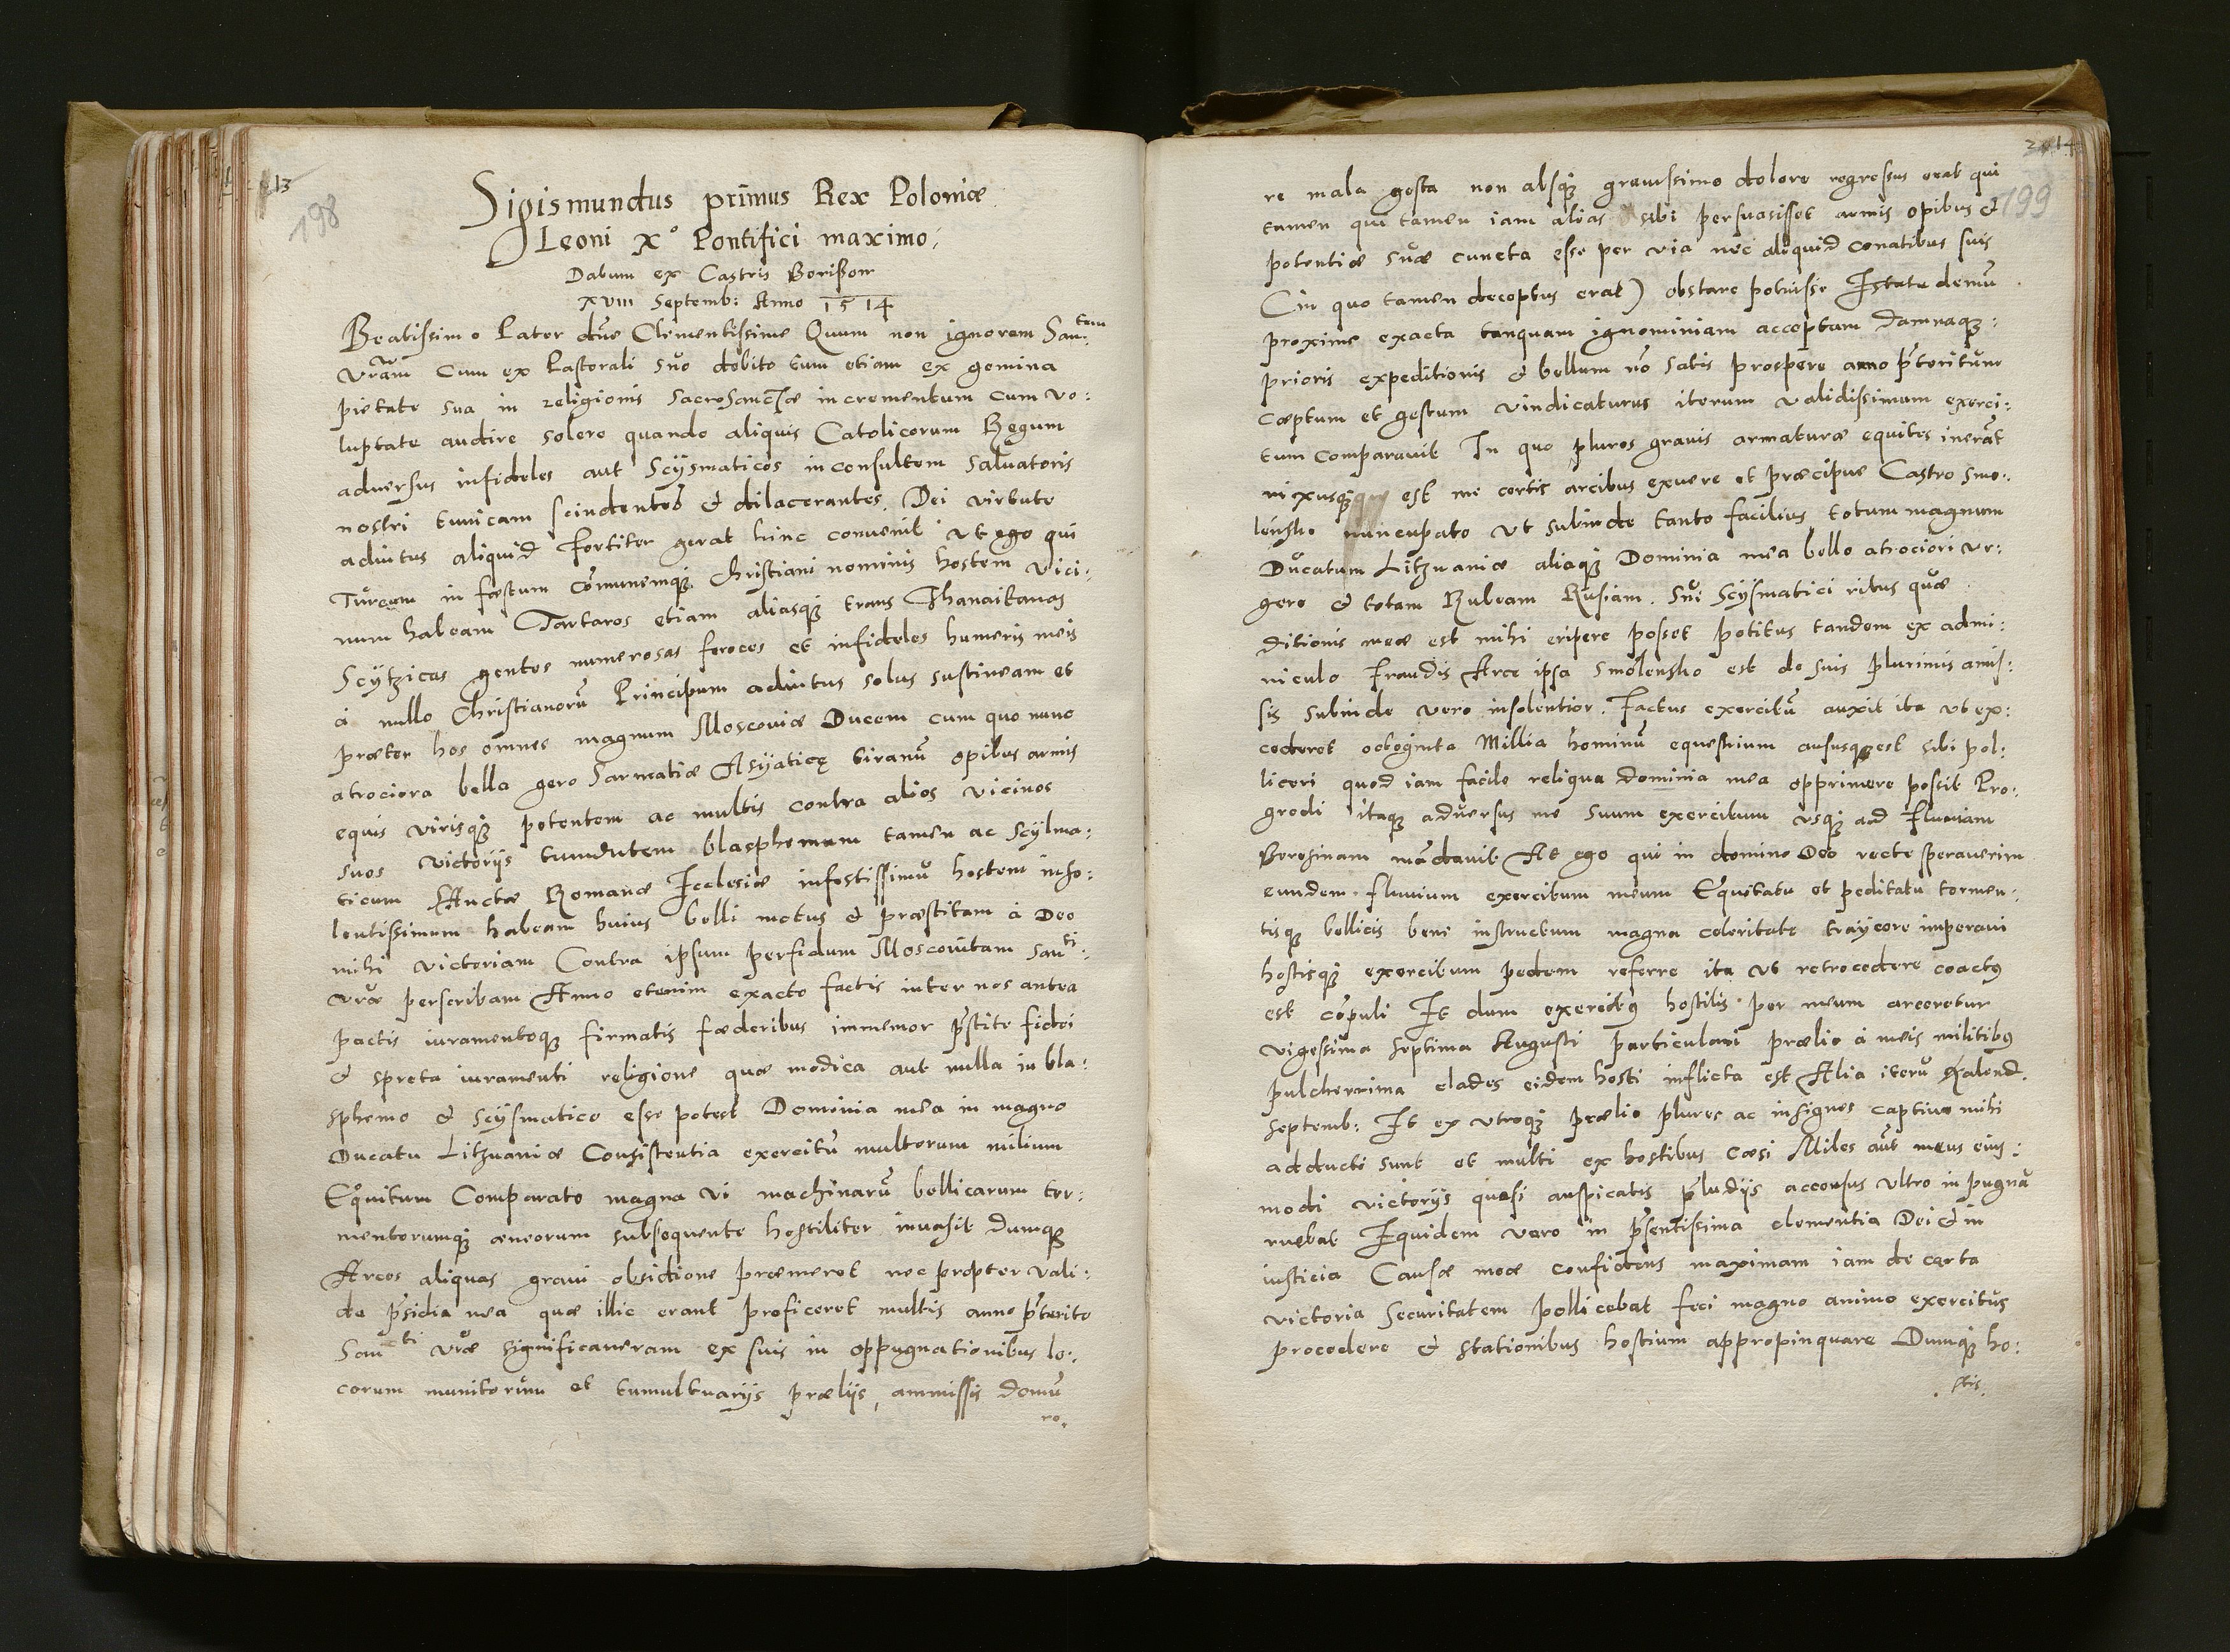 13
198
Sigismundus primus Rex Poloniæ
Leoni X° Pontifici maximo,
Datum ex Castris Borißow
XVIII Septemb: Anno 1514
Beatissimo Pater dne Clementissime Quum non ignorem San:tem
vram cum ex Pastorali suo debito tum etiam ex gemina
pietate sua in religionis sacrosanctæ incrementum cum vo:
luptate audire solere quando aliquis Catolicorum Regum
adversus infideles aut Scysmaticos inconsultem salvatoris
nostri tunicam scindentes & dilacerantes, Dei virtute
adiutus aliquid fortiter gerat hinc convenit ut ego qui
Turcum infæstum comunemq3 Christiani nominis hostem vici:
num habeam Tartaros etiam aliasq3 trans Thanaitanas
Scytzicas gentes numerosas feroces et infideles humeris meis
à nullo Christianorū Principum adiutus solus sustineam et
præter hos omnes magnum Moscoviæ Ducem cum quo nunc
atrociora bella gero Sarmatiæ Asyaticę tiranū opibus armis
equis virisq3 potentem ac multis contra alios vicinos
suos victorijs tumdutem blasphemum tamen ac Scysma:
ticum Romanæ Ecclesiæ infestissimū hostem inso:
lentissimum habeam huius belli motus & præstitam à Deo
mihi victoriam Contra ipsum perfidum Moscovitam San:ti
vræ perscribam Anno etenim exacto factis inter nos antea
pactis iuramentoq3 firmatis fæderibus immemor pstite fidei
& spreta iuramenti religione quæ modica aut nulla in bla:
sphemo & scysmatico esse potest Dominia mea in magno
Ducatu Litzuaniæ Consistentia exercitū multorum milium
Equitum Comparato magna vi machinarū bellicarum tor:
mentorumq3 æneorum subsequente hostiliter invasit dumq3
Arces aliquas gravi obsidione præmeret nec propter vali:
da psidia mea quæ illic erant proficeret multis anno pterito
Sancti vræ significaveram ex suis in oppugnationibus lo:
corum munitorum et tumultuarijs prælijs, ammissis domū
re.
214
199
re mala gesta non absq3 gravissimo dolore regressus erat qui
tamen qui tamen iam alias sibi persuasisset armis opibus &
potentiæ suæ cuncta esse per via nec aliquid conatibus suis
(in quo tamen deceptus erat) obstare potuisse Estate demū
proxime exacta tanquam ignominiam acceptam damnaq3:
prioris expeditionis & bellum nō satis prospere anno pteritune
cæptum et gestum vindicaturus iterum validissimum exerci:
tum comparavit In quo plures gravis armaturæ equites inerāt
nixusq3 est me certis arcibus exuere et præcipue Castro Smo:
lensko nuncupato ut subinde tanto facilius totum magnum
Ducatum Litzuaniæ aliaq3 Dominia mea bello atrociori ur:
gere & totam Rubeam Rusiam. Sui Scysmatici ritus quæ
ditionis meæ est mihi eripere posset potitus tandem ex admi:
niculo fraudis Arce ipsa Smolensko est de suis plurimis amis:
sis subinde vero insolentior. Factus exercitū auxit ita ut ex:
cederet octoginta Millia hominū equestrium aususq3 est sibi pol:
liceri quod iam facile reliqua dominia mea opprimere possit Pro:
gredi itaq3 adversus me suum exercitum usq3 ad fluvium
Beresinam mādavit At ego qui in domino Deo recte speraverim
eundem fluvium exercitum meum Equitatu et peditatu tormen:
tisq3 bellicis beni instructum magna celeritate traycere imperavi
hostisq3 exercitum pedem referre ita ut retrocedere coactꝰ
est cōpuli Et dum exercitꝰ hostilis per meum arceretur
vigessima septima Augusti particulari prælio à meis militibꝰ
pulcherrima clades eidem hosti inflicta est Alia iterū Kalend.
Septemb: Et ex utroq3 prælio plures ac insignes captivæ mihi
adducti sunt et multi ex hostibus cæsi Miles aūt meus eius:
modi victorijs quasi auspicatis pludijs accensus ultro in pugnā
ruebat Equidem vero in psentissima clementia Dei & in
iusticia Causæ meæ confidens maximam iam de certa
victoria securitatem pollicebat feci magno animo exercitus
procedere & stationibus hostium appropinquare Dumq3 ho:
stis.